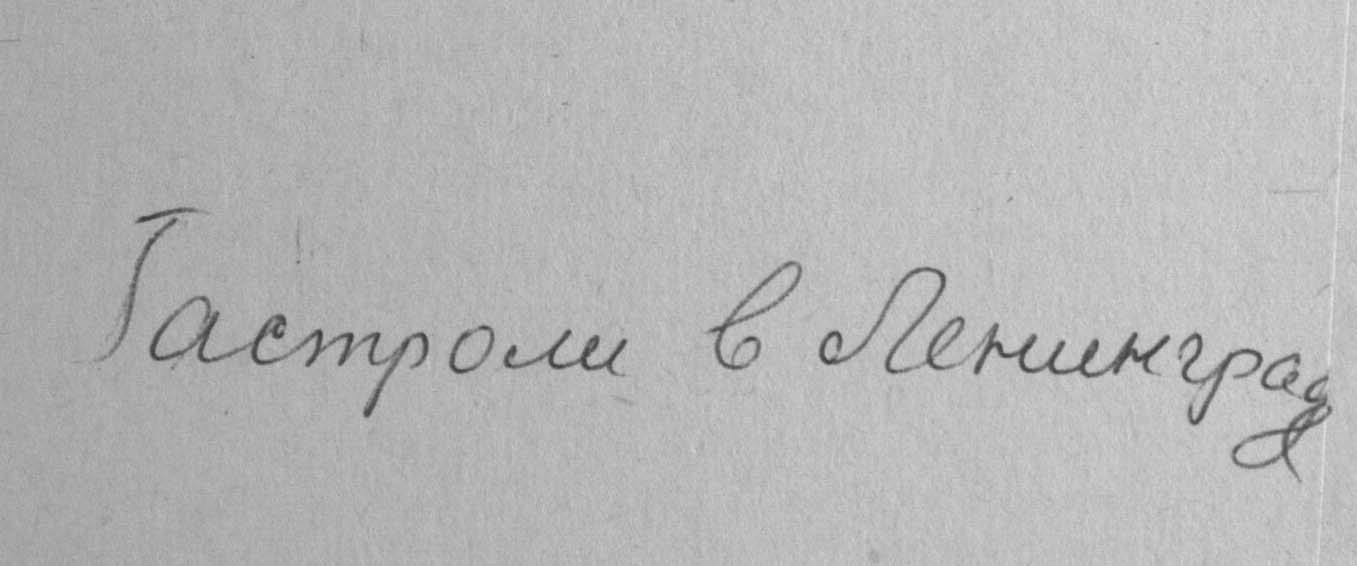 Гастроли в Ленинграде